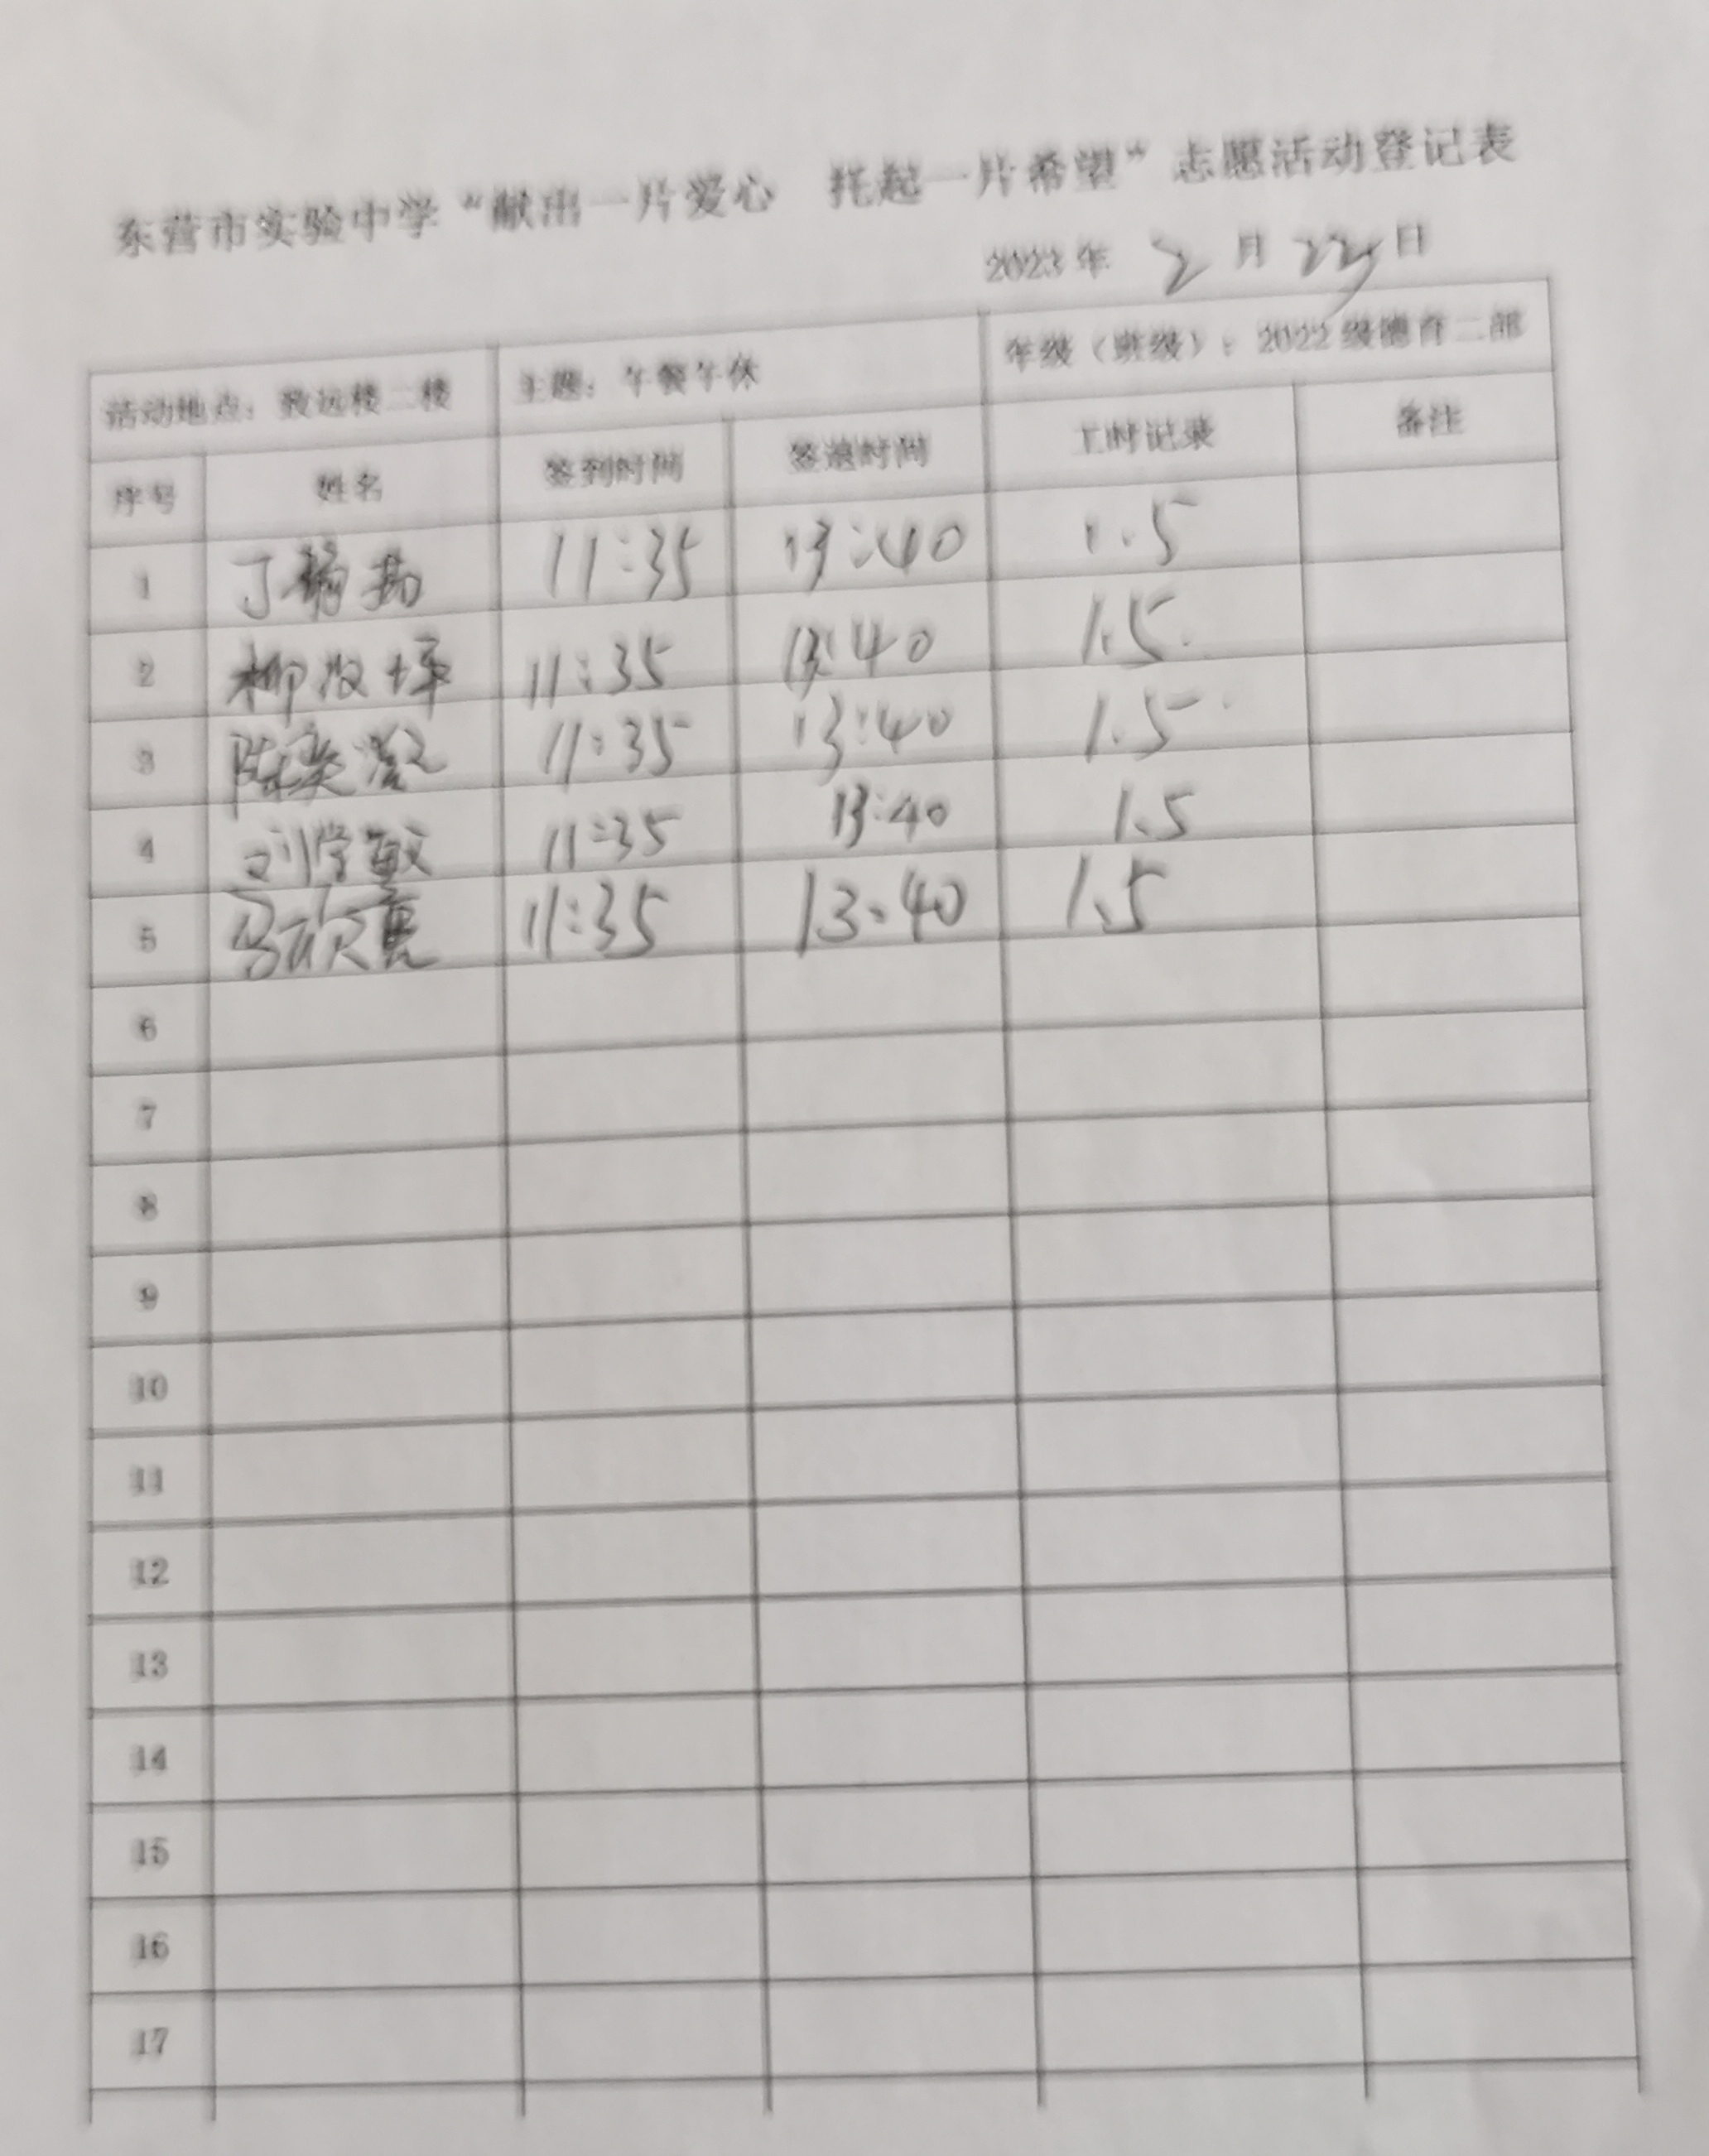 东营市实验中学“献出一片爱心 托起一片希望”志愿活动登记表
2023年 2 月 日
活动地点：致远楼二楼 主题：午餐午休 年级（班级）：2022级德育二部
序号 姓名 签到时间 签退时间 工时记录 备注
1 丁 11:35 13:40 1.5
2 柳 11:35 13:40 1.5
3 陈奕 11:35 13:40 1.5
4 刘学敏 11:35 13:40 1.5
5 马欣 11:35 13:40 1.5
6
7
8
9
10
11
12
13
14
15
16
17